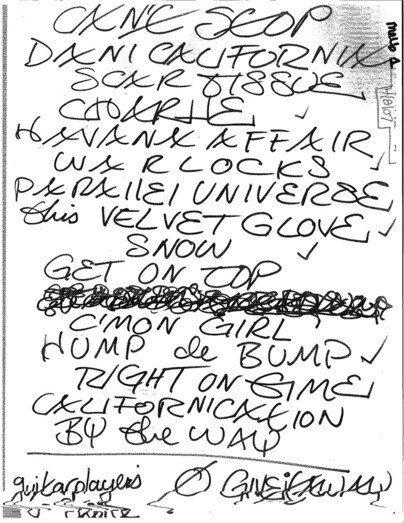 CAN'T STOP
DANI CALIFORNIA
SCAR TISSUE
CHARLIE
HAVANA AFFAIR
WARLOCKS
PARAllEl UNIVERSE
this VELVET GLOVE
SNOW
GET ON TOP
C'MON GIRL
HUMP de BUMP
RIGHT ON TIME
CALIFORNICATION
BY the WAY
GIVE it AWAY